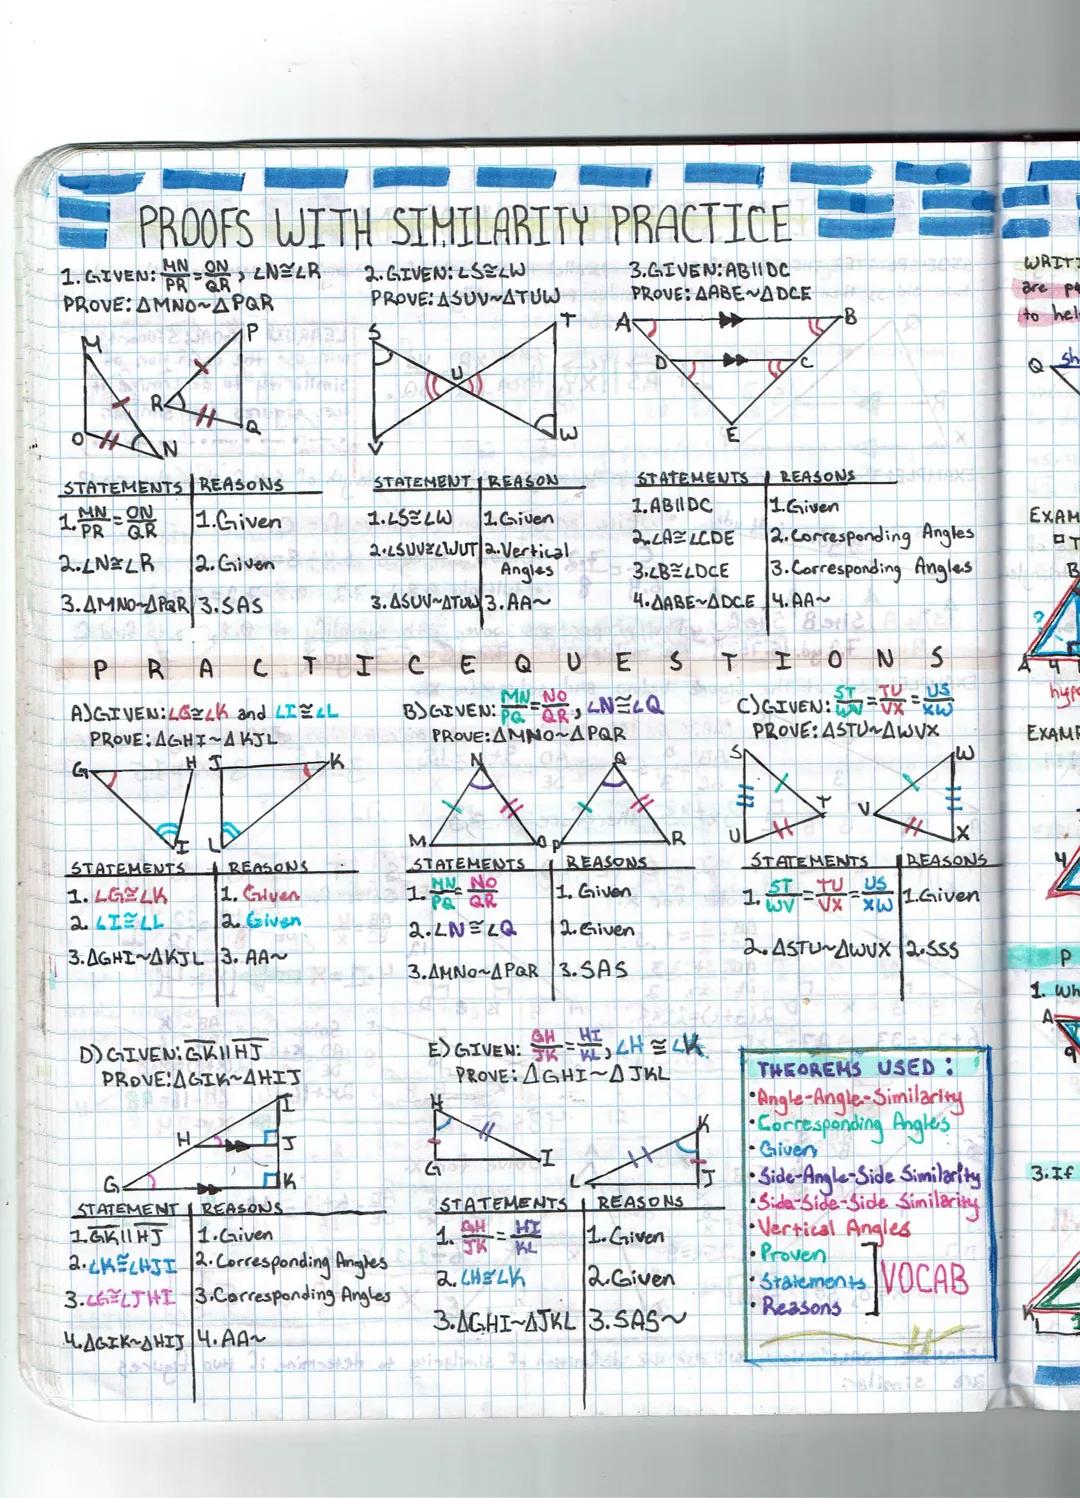 PROOFS WITH SIMILARITY PRACTICE
1. GIVEN: MN/PR = ON/QR, ∠N≅∠R
PROVE: ΔMNO~ΔPQR
M
P
R
O
N
Q
STATEMENTS | REASONS
1. MN/PR = ON/QR | 1. Given
2. ∠N≅∠R | 2. Given
3. ΔMNO~ΔPQR | 3. SAS
2. GIVEN: ∠S≅∠W
PROVE: ΔSUV~ΔTUW
S
T
U
V
W
STATEMENT | REASON
1. ∠S≅∠W | 1. Given
2. ∠SUV≅∠WUT | 2. Vertical
Angles
3. ΔSUV~ΔTUW | 3. AA~
3. GIVEN: AB||DC
PROVE: ΔABE~ΔDCE
A
B
D
C
E
STATEMENTS | REASONS
1. AB||DC | 1. Given
2. ∠A≅∠CDE | 2. Corresponding Angles
3. ∠B≅∠DCE | 3. Corresponding Angles
4. ΔABE~ΔDCE | 4. AA~
PRACTICE QUESTIONS
A) GIVEN: ∠G≅∠K and ∠I≅∠L
PROVE: ΔGHI~ΔKJL
G
H
J
K
I
L
STATEMENTS | REASONS
1. ∠G≅∠K | 1. Given
2. ∠I≅∠L | 2. Given
3. ΔGHI~ΔKJL | 3. AA~
B) GIVEN: MN/PQ = NO/QR, ∠N≅∠Q
PROVE: ΔMNO~ΔPQR
N
Q
M
O
P
R
STATEMENTS | REASONS
1. MN/PQ = NO/QR | 1. Given
2. ∠N≅∠Q | 2. Given
3. ΔMNO~ΔPQR | 3. SAS
C) GIVEN: ST/WV = TU/VX = US/XW
PROVE: ΔSTU~ΔWVX
S
W
T
V
U
X
STATEMENTS | REASONS
1. ST/WV = TU/VX = US/XW | 1. Given
2. ΔSTU~ΔWVX | 2. SSS
D) GIVEN: GK||HJ
PROVE: ΔGIK~ΔHIJ
I
H
J
G
K
STATEMENT | REASONS
1. GK||HJ | 1. Given
2. ∠K≅∠HJI | 2. Corresponding Angles
3. ∠G≅∠JHI | 3. Corresponding Angles
4. ΔGIK~ΔHIJ | 4. AA~
E) GIVEN: GH/JK = HI/KL, ∠H≅∠K
PROVE: ΔGHI~ΔJKL
H
K
G
I
L
J
STATEMENTS | REASONS
1. GH/JK = HI/KL | 1. Given
2. ∠H≅∠K | 2. Given
3. ΔGHI~ΔJKL | 3. SAS~
THEOREMS USED:
• Angle-Angle-Similarity
• Corresponding Angles
• Given
• Side-Angle-Side Similarity
• Side-Side-Side Similarity
• Vertical Angles
• Proven
• Statements
• Reasons
VOCAB
are
to hel
Q
sh
EXAM
B
A 4
hyp
EXAMP
4
P
1. Wh
A
9
3. If
K